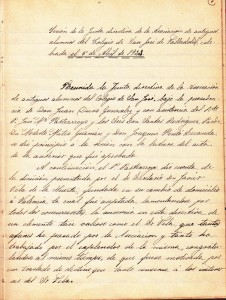 Sesión de la Junta directiva de la Asociación de antiguos
alumnos del Colegio de San José de Valladolid, cele-
brada el 8 de Abril de 1923
Reunida la Junta directiva de la Asociación
de antiguos alumnos del Colegio de San José, bajo la presiden-
cia de Don Juan Duro González y con asistencia del Rdo
P. José Mª y los Srs. Don Carlos Rodríguez, Pedro
Modesto Pérez Guzmán y Don Joaquín
se dio principio a la sesión con la lectura del acta
de la anterior que fue aprobada.
A continuación el P. da cuenta de la
dimisión presentada por el Secretario Don Javier
Vela de la Huerta, fundada en su cambio de domicilio
a Valencia, la cual fue aceptada, lamentándose por
todos los concurrentes la ausencia en esta directiva, de
un elemento tan valioso como el Sr. Vela que tanto
ha pasado por la Asociación y tanto ha
trabajado por el esplendor de la misma, congratu-
lándose al mismo tiempo, de que fuese motivada, por
un traslado de destino que tanto conviene a los intere-
ses del Sr. Vela.